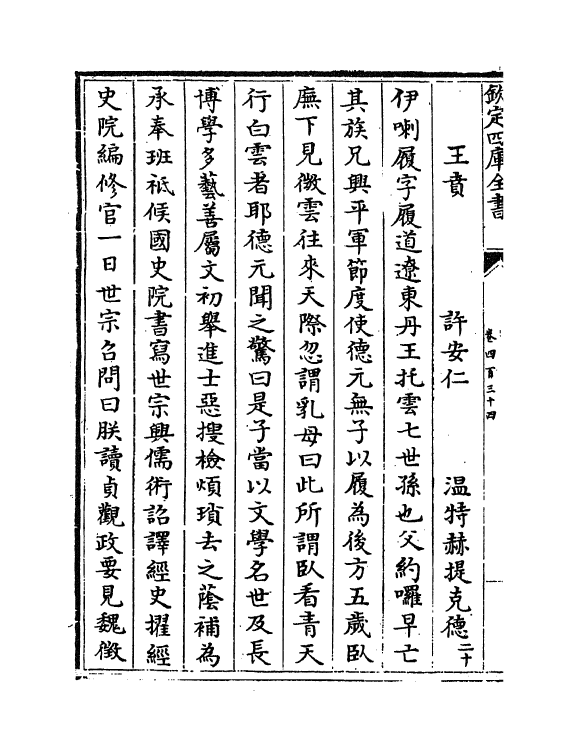 欽定四庫全書
卷四百三十四
王賁　許安仁　温特赫提克德二十
伊喇履字履道遼東丹王托雲七世孫也父約囉早亡
其族兄興平軍節度使德元無子以履為後方五歲臥
廡下見微雲往來天際忽謂乳母曰此所謂臥看青天
行白雲者耶德元聞之驚曰是子當以文學名世及長
博學多藝善屬文初舉進士惡搜檢煩瑣去之蔭補為
承奉班祗候國史院書寫世宗興儒術詔譯經史擢經
史院編修官一日世宗召問曰朕讀貞觀政要見魏徴